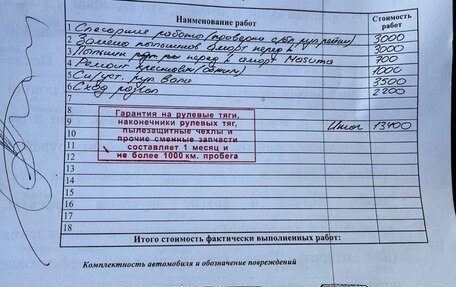 Наименование работ Стоимость работ
1 Слесарные работы (проверка 3000
2 Замена пыльников аморт перед к 3000
3 Пыльник к аморт Masuma 700
4 Ремонт крестовин 1000
5 С/уст. рул вала 3500
6 Сход развал 2200
7
8
9 Итог 13400
10
11
12
13
14
15
16
17
18
Гарантия на рулевые тяги,
наконечники рулевых тяг,
пылезащитные чехлы и
прочие сменные запчасти
составляет 1 месяц и
не более 1000 км. пробега
Итого стоимость фактически выполненных работ:
Комплектность автомобиля и обозначение повреждений